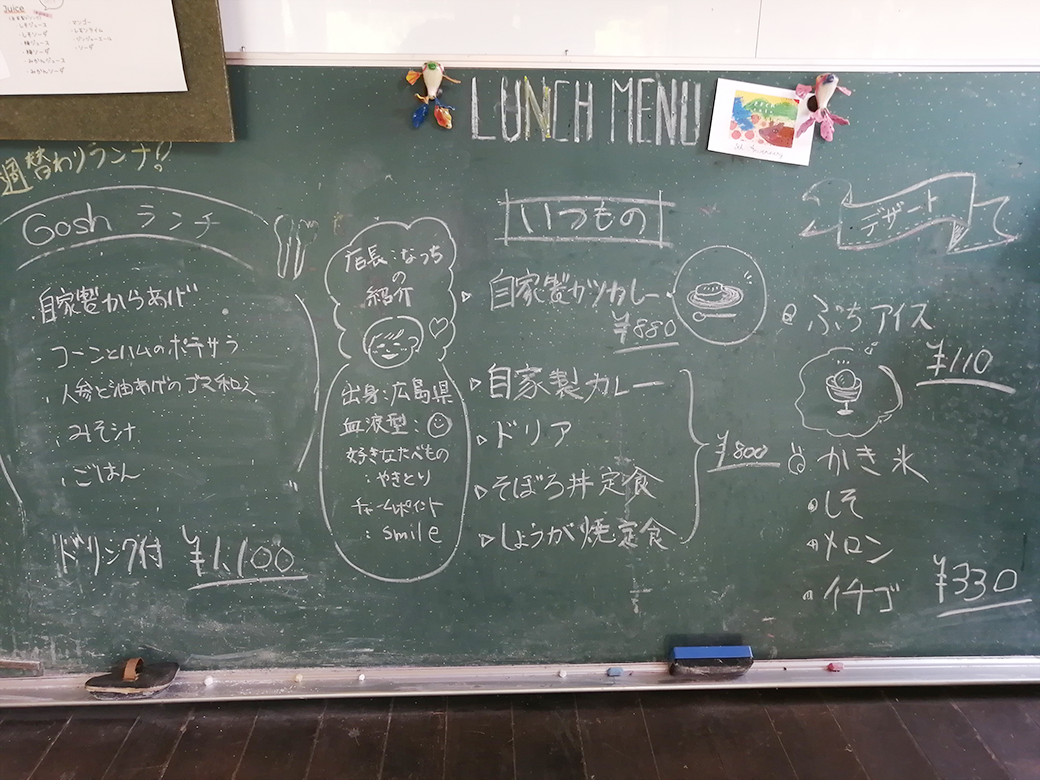 Juice
LUNCH MENU
週替わりランチ!!
Gosh ランチ
自家製からあげ
・コーンとハムのポテサラ
・人参と油あげのゴマ和え
・みそ汁
・ごはん
ドリンク付 ¥1,100
店長:なっち
の
紹介
出身:広島県
血液型:
好きなたべもの
:やきとり
チャームポイント
:smile
いつもの
自家製カツカレー
¥880
自家製カレー
ドリア
そぼろ丼定食
しょうが焼定食
¥800
デザート
ぷちアイス
¥110
かき氷
しそ
メロン
イチゴ
¥330